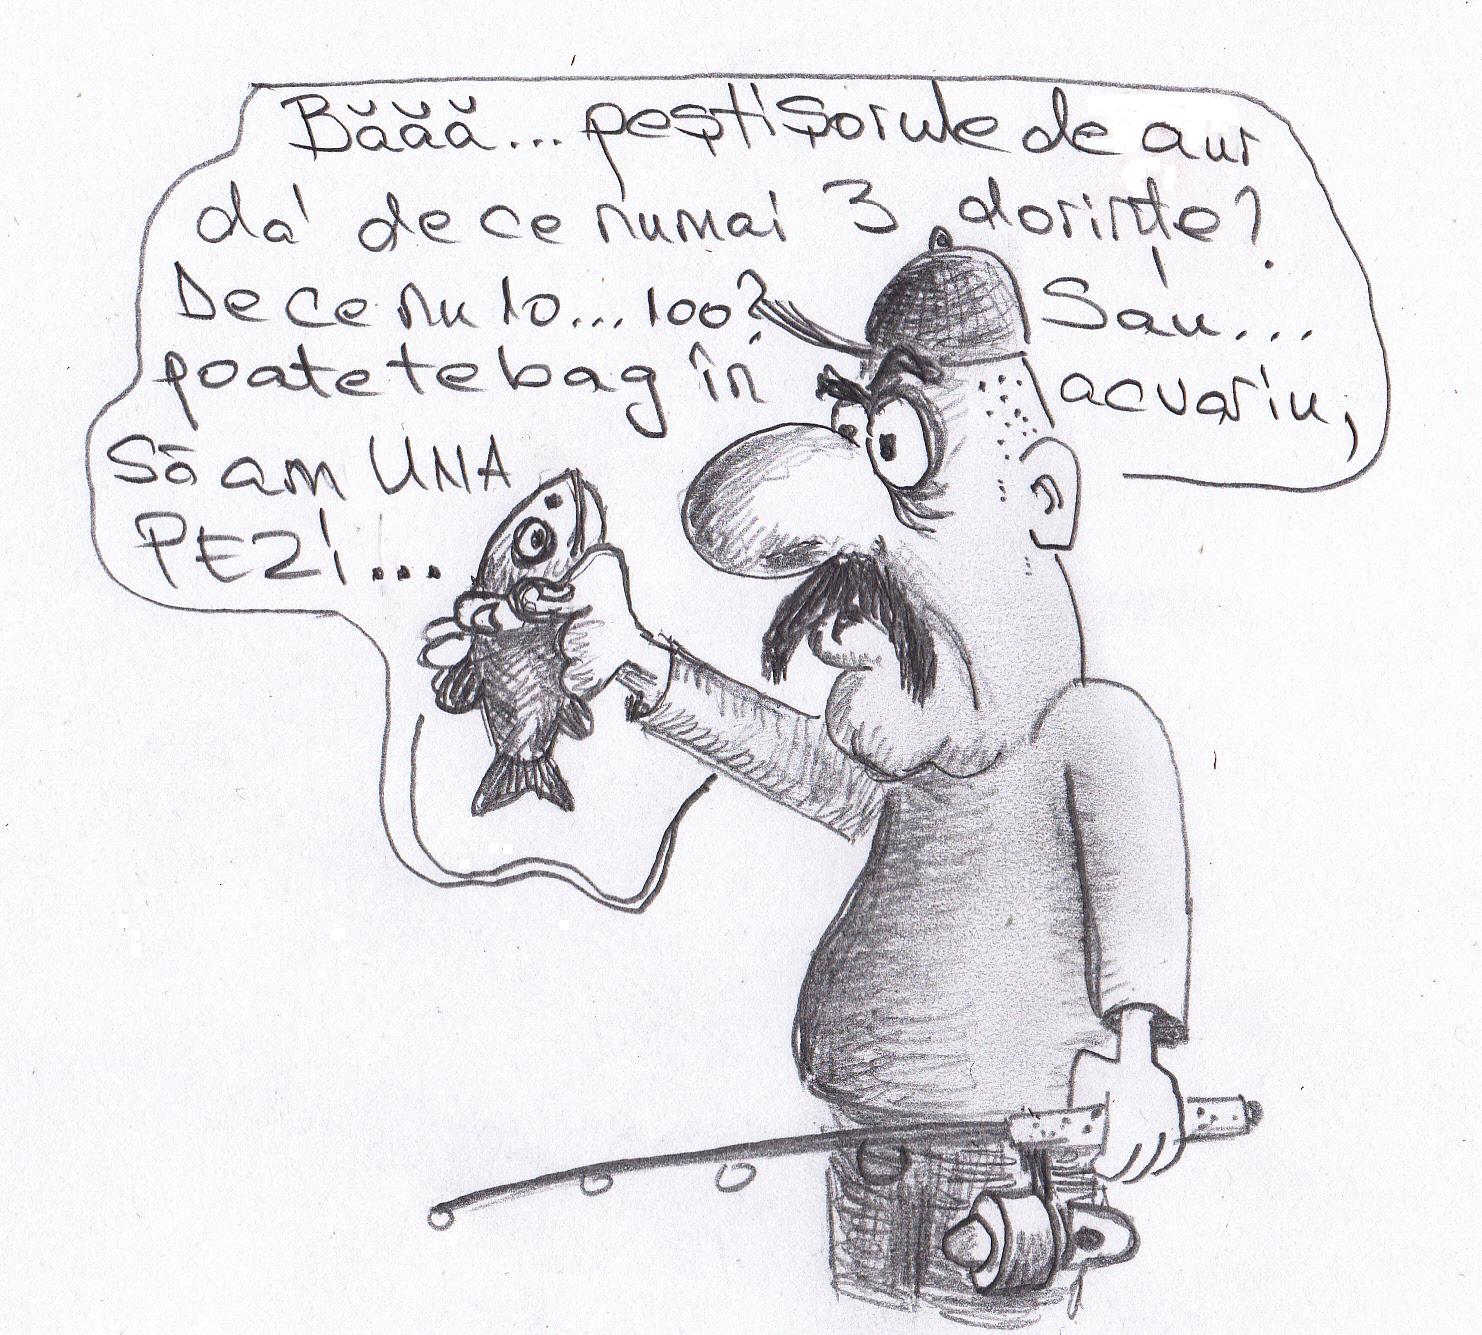 Băăă... peștișorule de aur
da' de ce numai 3 dorințe?
De ce nu 10... 100? Sau...
poate te bag în acvariu,
să am UNA
PE ZI...